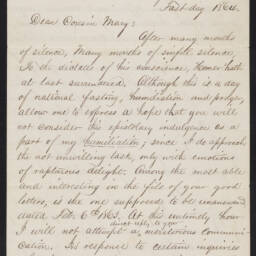 Fast-day 1864.
Dear Cousin Mary:
After many months
of silence, Many months of simple silence,
To the dictates of his conscience, Homer hath
at last surrendered. Although this is a day
of national fasting, humiliation and prayer,
allow me to express a hope that you will
not consider this epistolary indulgence as a
part of my humiliation; since I do approach
the not unwilling task, only with emotions
of rapturous delight. Among the most able
and interesting in the file of your good
letters, is the one supposed to be unanswered
dated Feb. 6th 1863. At this untimely hour
direct reply to your
I will not attempt a meritorious communi-
cation. Its response to certain inquiries